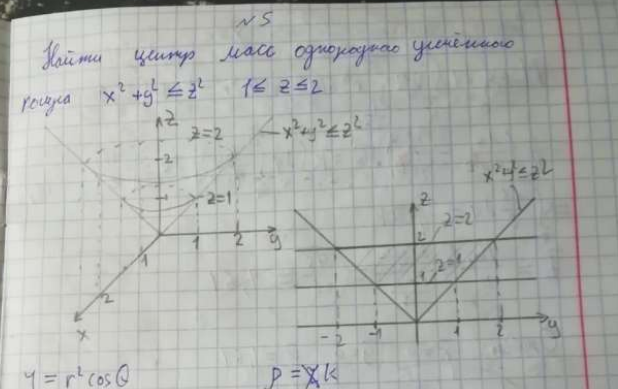 N5
Найти центр масс однородного усечённого
конуса x² + y² ≤ z² 1 ≤ z ≤ 2
z
z=2
x²+y² ≤ z²
2
z=1
1
1
2
y
1
2
x
x²+y² ≤ z²
z
z=2
2
z=1
1
-2
-1
1
2
y
y = r² cos θ
ρ = k